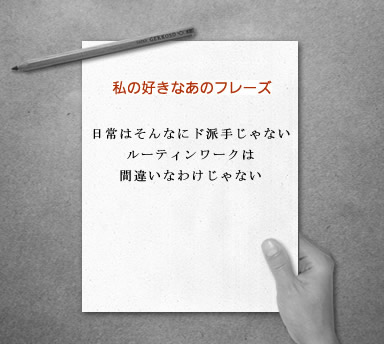 私の好きなあのフレーズ
日常はそんなにド派手じゃない
ルーティンワークは
間違いなわけじゃない